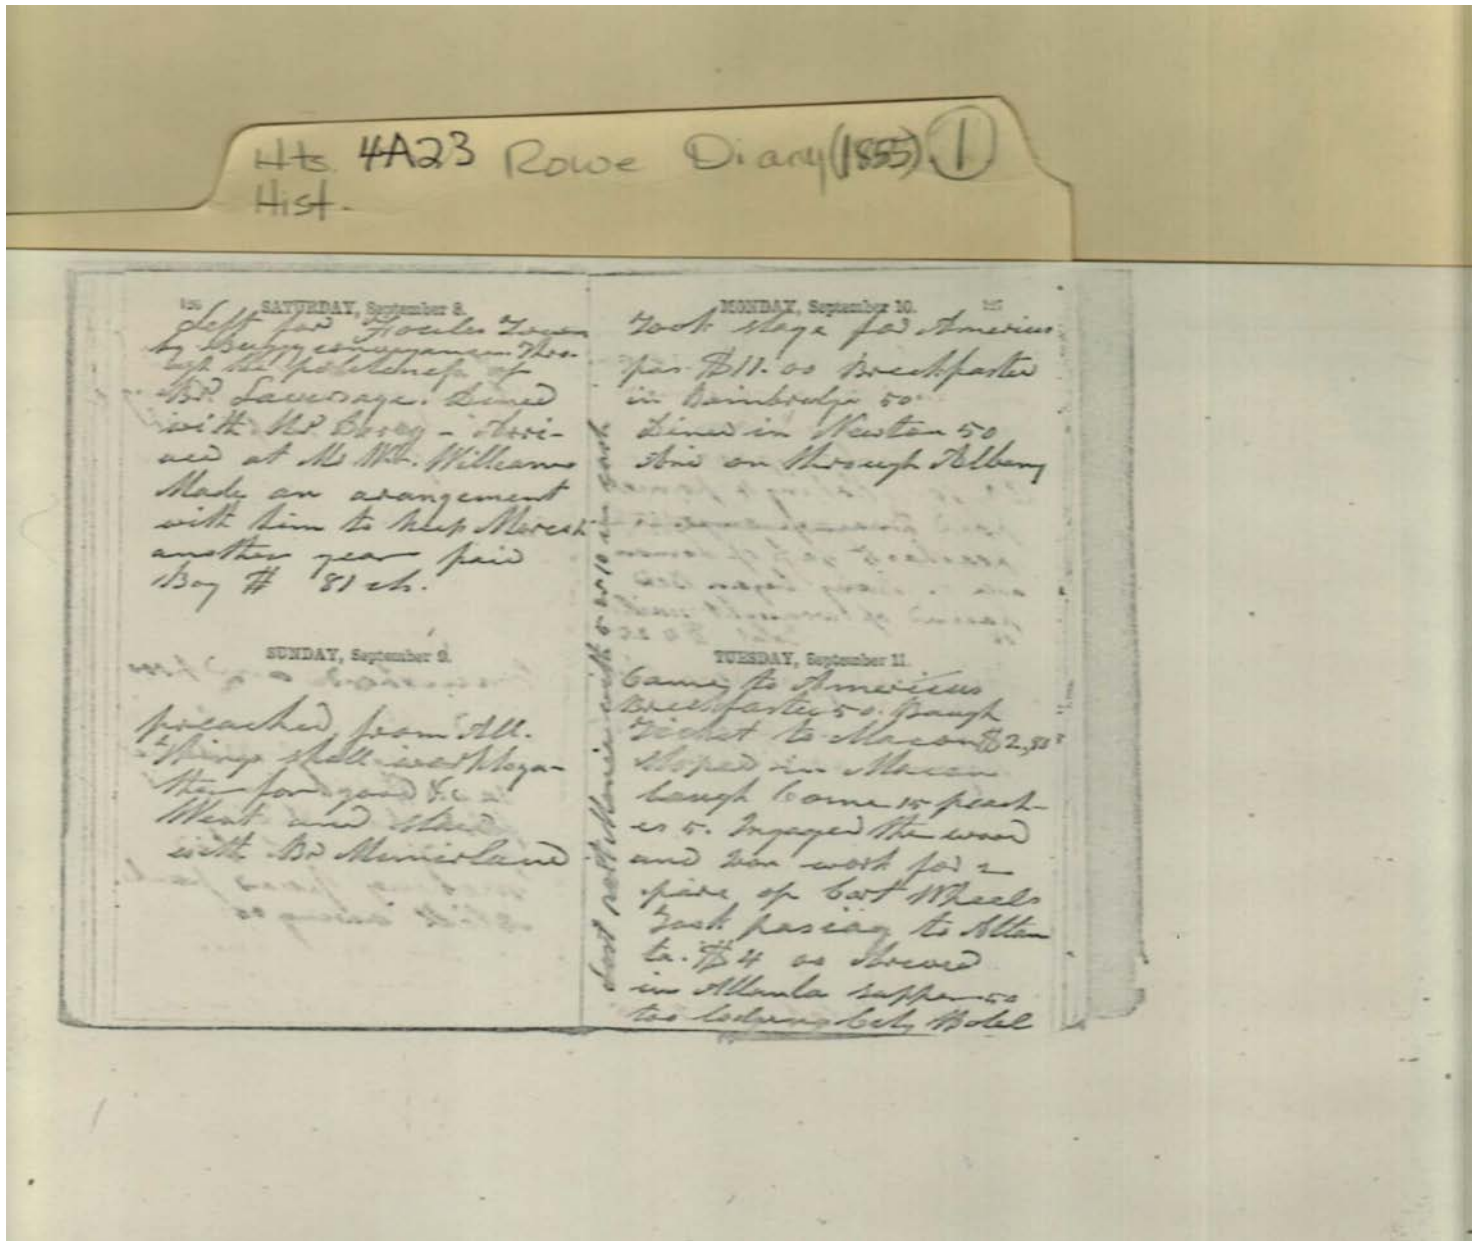 Hts. 4A23 Rowe Diary (1855) 1
Hist.
126 SATURDAY, September 8.
Left for
by Bugy conveyance Thro-
ugh the politeness of
Br Laversage. Dined
with Mr - Arri-
ved at Mr Wm. Williams
Made an arangement
with him to keep
another year paid
Boy $ 81 ch.
SUNDAY, September 9.
preached from All.
things shall work toga-
ther for good &c
Went and staid
with Br
MONDAY, September 10. 127
Took stage for Americus
pas $11.00 Breckfasted
in Bainbridge 50
Dined in Newton 50
And on through Albany
TUESDAY, September 11.
Came to Americus
Breckfasted 50. Baugh
Ticket to Macon $2,
Stoped in Macon
baugh Come 15 peach-
es 5. Ingaged the wood
and iron work for a
pare of Cart Wheels
Took pasiag to Atlan
ta. $4 00 Arived
in Atlanta supper 50
too City Hotel